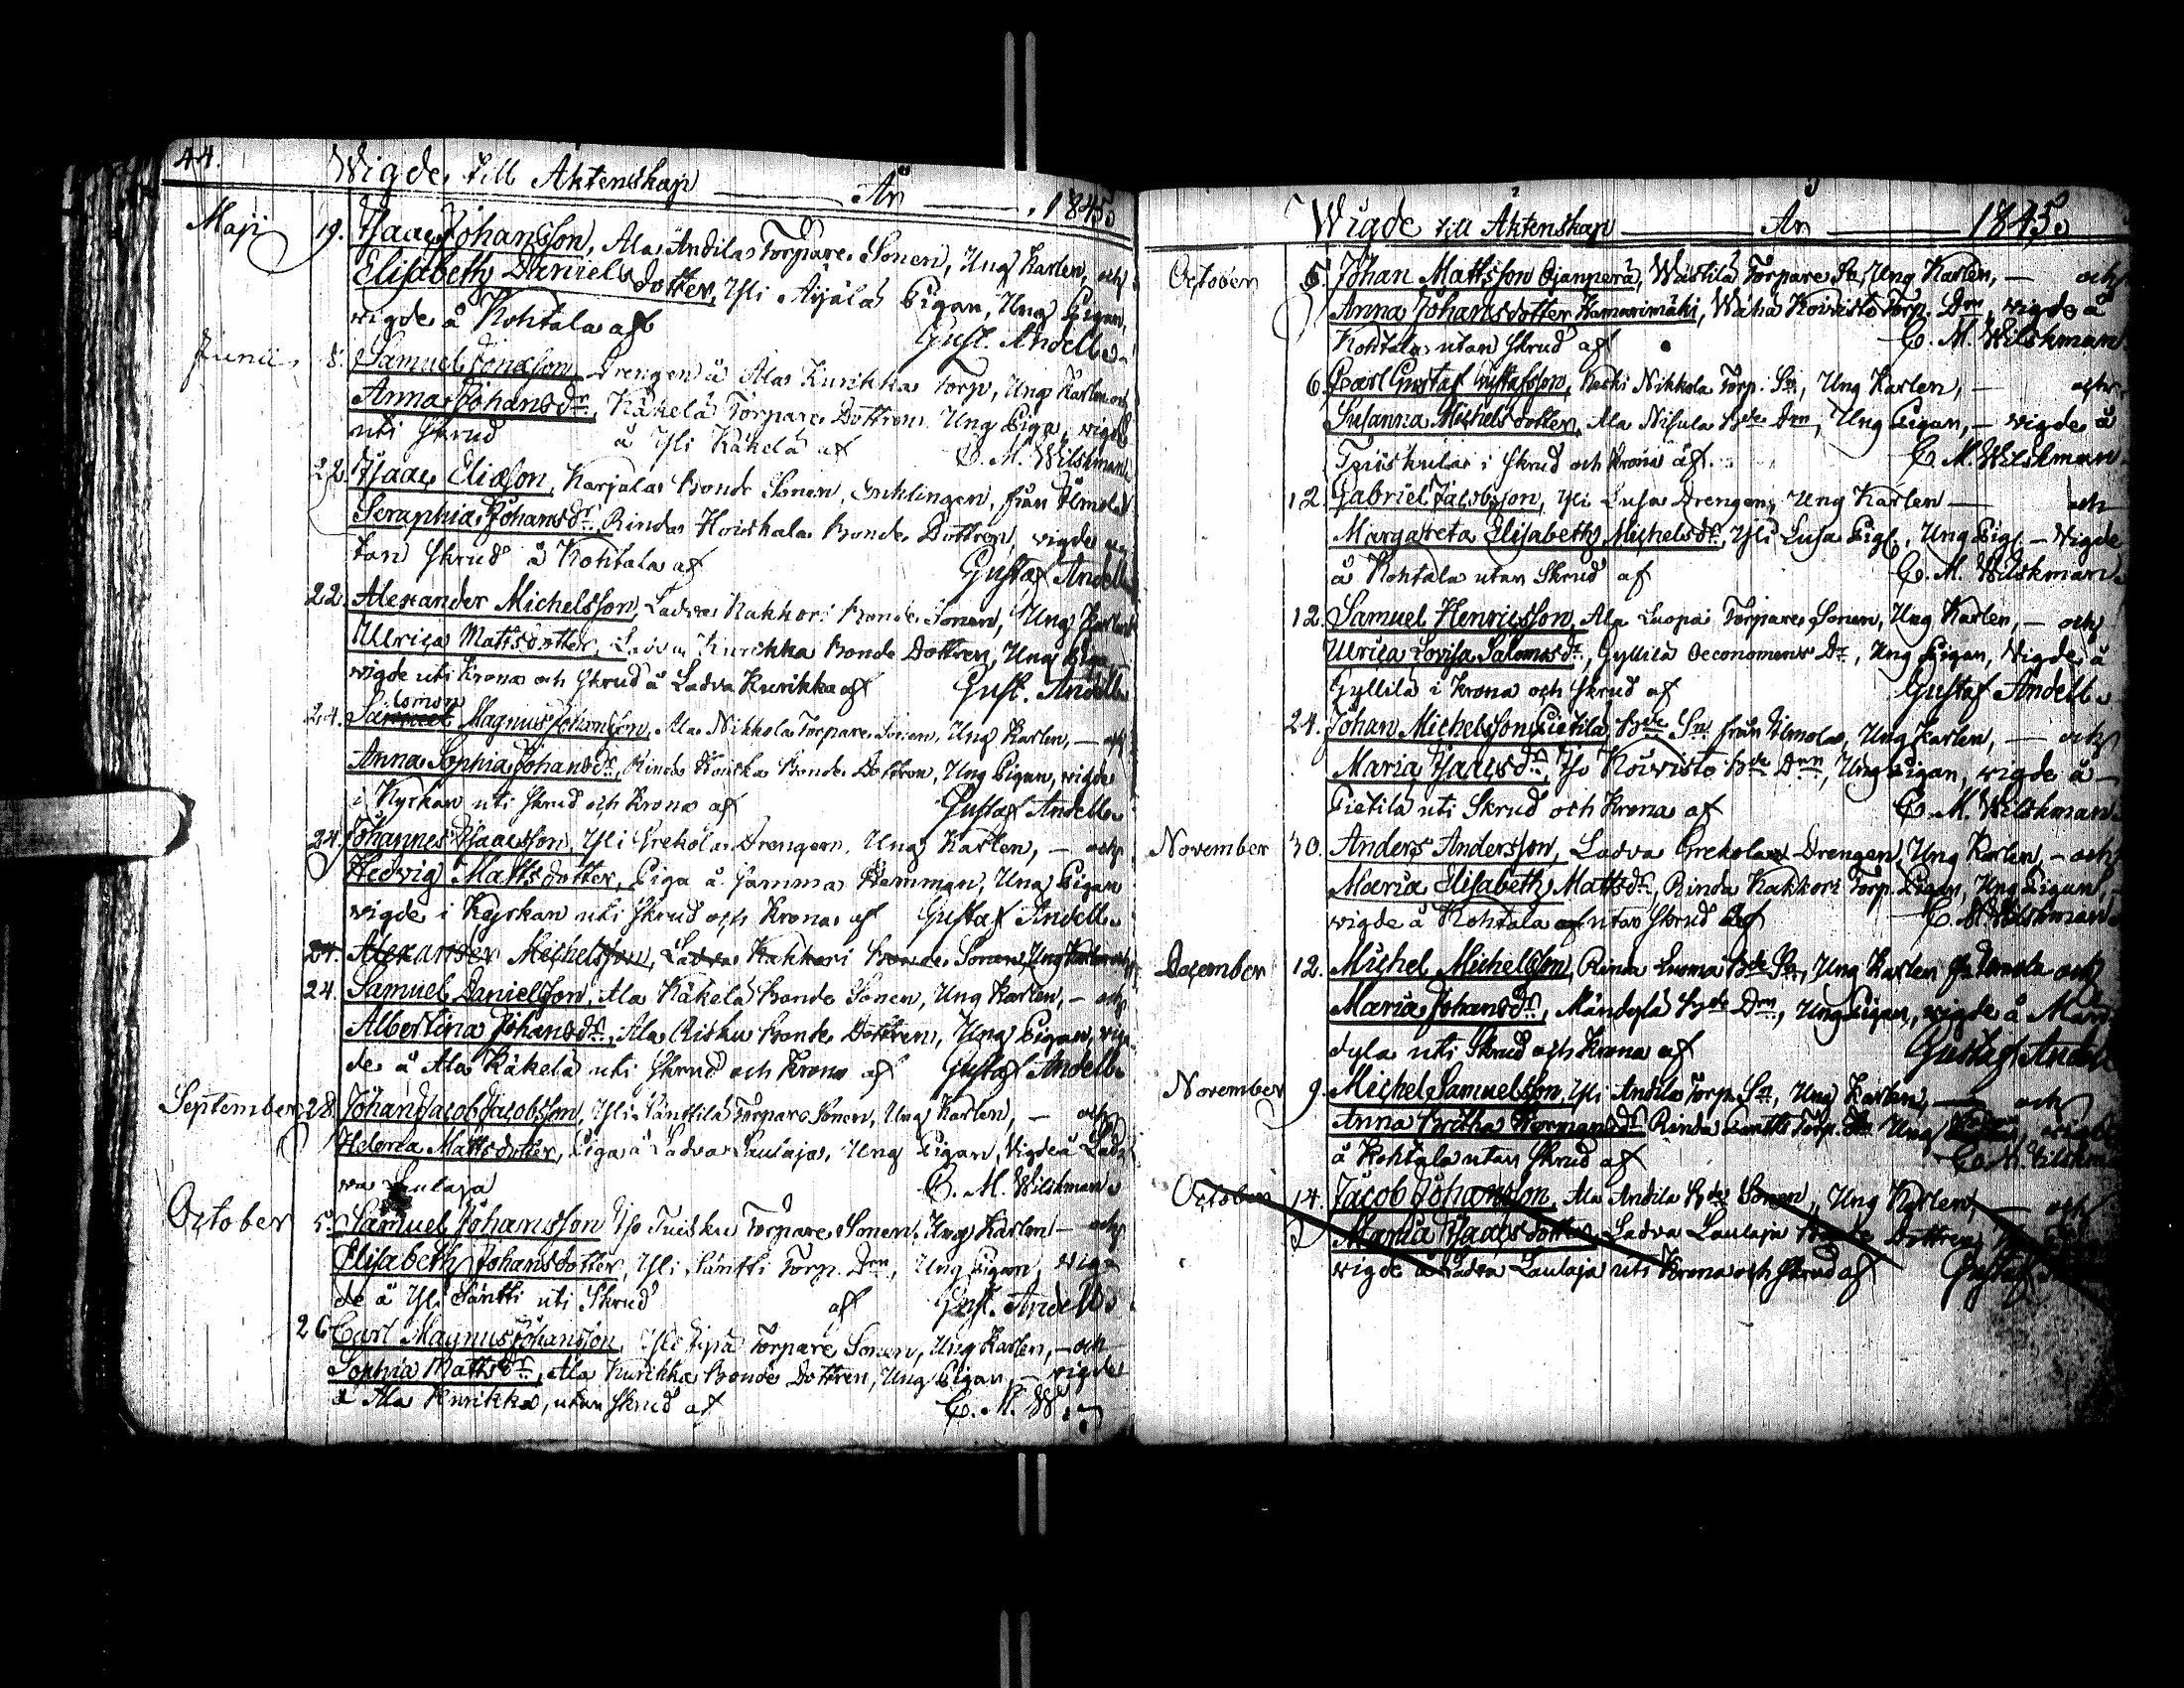 44.
Wigde till Äktenskap År 1845.
Maji 19. Isaac Johansson, Ala Andila Torpare Sonen, Ung Karlen, och
Elisabeth Daniels dotter, Yli Äijälä Pigan, Ung Pigan,
wigde å Kohtala af Gust. Andell.
Junii 8. Samuel Jonasson, Drengen å Ala Kurikka Torp, Ung Karlen och
Anna Johansdr, Käkelä Torpare Dottren Ung Piga, wigde
uti skrud å Yli Käkelä af C. M. Wilskman
22. Isaac Eliasson, Karjala Bonde Sonen, Enklingen, från Ilmola
Seraphia Johansdr. Rinda Houskala Bonde Dottren, wigde
tan skrud å Kohtala af Gustaf Andell
22. Alexander Michelsson, Ladva Kakkori Bonde Sonen, Ung Karlen
Ulrica Mattsdotter, Ladva Kurikka Bonde Dottren, Ung Piga
wigde uti Krona och skrud å Ladva Kurikka af Gust. Andell.
24. Salomon Magnus Johansson, Ala Nikkola Torpare Sonen, Ung Karlen, — och
Anna Sophia Johansdr, Rinda Houska Bonde Dottren, Ung Pigan, wigde
i Kyrkan uti skrud och Krona af Gustaf Andell.
24. Johannes Isaacsson, Yli Grekola Drengen. Ung Karlen, — och
Hedvig Matts dotter, Piga å samma Hemman, Ung Pigan
wigde i Kyrkan uti skrud och Krona af Gustaf Andell.
24. Alexander Michelsson, Ladva Kakkori Bonde Sonen, Ung Karlen och
24. Samuel Danielsson, Ala Käkelä Bonde Sonen, Ung Karlen, — och
Albertina Johansdr. Ala Risku Bonde Dottren, Ung Pigan, wig-
de å Ala Käkelä uti skrud och Krona af Gustaf Andell.
September 28. Johan Jacob Jacobsson, Yli Panttila Torpare Sonen, Ung Karlen, — och
Helena Matts dotter, Piga å Ladva Laulaja, Ung Pigan, Vigde å Lad-
wa Laulaja C. M. Wilskman.
October 5. Samuel Johansson Iso Tuisku Torpare Sonen, Ung Karlen — och
Elisabeth Johansdotter, Yli Säntti Torp. Drn, Ung Pigan, wig-
de å Yli Säntti uti Skrud af Gust. Andell.
26 Carl Magnus Johansson, Yli Torpare Sonen, Ung Karlen, — och
Sophia Mattsdr, Ala Kurikka Bonde Dottren, Ung Pigan — wigde
å Ala Kurikka, utan skrud af C. M. W.
Wigde till Äktenskap År 1845.
October 5. Johan Mattsson Ojanperä, Wästilä Torpare Sn, Ung Karlen, — och
Anna Johansdotter Kamarimäki, Wähä Koivisto Torp. Drn, wigde å
Kohtala utan skrud af C. M. Wilskman
6. Carl Gustaf Gustafsson, Keski Nikkola Torp. Sn, Ung Karlen, — och
Susanna Michelsdotter, Ala Nisula Bde Drn, Ung Pigan, — wigde å
i skrud och Krona af C. M. Wilskman
12. Gabriel Jacobsson, Yli Lusa Drengen, Ung Karlen — och
Margareta Elisabeth Michelsdr, Yli Lusa Pig, Ung Pig. — Wigde
å Kohtala utan Skrud af C. M. Wilskman.
12. Samuel Henricsson, Ala Luopa Torpare Sonen, Ung Karlen, — och
Ulrica Lovisa Salomonsdr, Gyllilä Oeconomens Dr, Ung Pigan, Wigde å
Gyllilä i Krona och skrud af Gustaf Andell.
24. Johan Michelsson Pietilä, Bde Sn från Ilmola, Ung Karlen, — och
Maria Isacsdr, Iso Koivisto Bde Drn, Ung Pigan, wigde å
Pietilä uti Skrud och Krona af C. M. Wilskman.
November 30. Anders Andersson, Ladva Grekola Drengen, Ung Karlen, — och
Maria Elisabeth Mattsdr, Rinda Kakkori Torp. Pigan, Ung Pigan, —
wigde å Kohtala af utan skrud af C. M. Wilskman.
December 12. Michel Michelsson, Rinda Luoma Bde Sn, Ung Karlen fr. Ilmola och
Maria Johansdr, Mändylä Bde Drn, Ung Pigan, wigde å Män-
dylä uti Skrud och Krona af Gustaf Andell
November 9. Michel Samuelsson, Yli Andila Torp. Sn, Ung Karlen, — och
Anna Britha Hermansdr Rinda Torp. Ung wigde
å Kohtala utan skrud af C. M. Wilskman
October 14. Jacob Johansson, Ala Andila Bde Sonen, Ung Karlen, — och
Maria Isaacsdotter, Ladva Laulaja Bonde Dottren,
wigde å Ladva Laulaja uti Krona och skrud af Gustaf